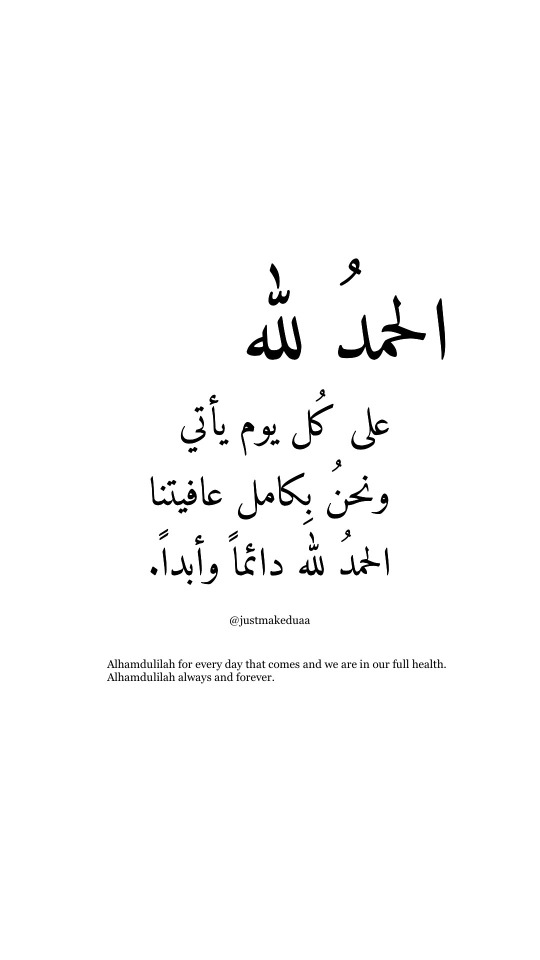 الحمدُ لله
على كُل يوم يأتي
ونحنُ بِكامل عافيتنا
الحمدُ لله دائماً وأبداً.
@justmakeduaa
Alhamdulilah for every day that comes and we are in our full health.
Alhamdulilah always and forever.